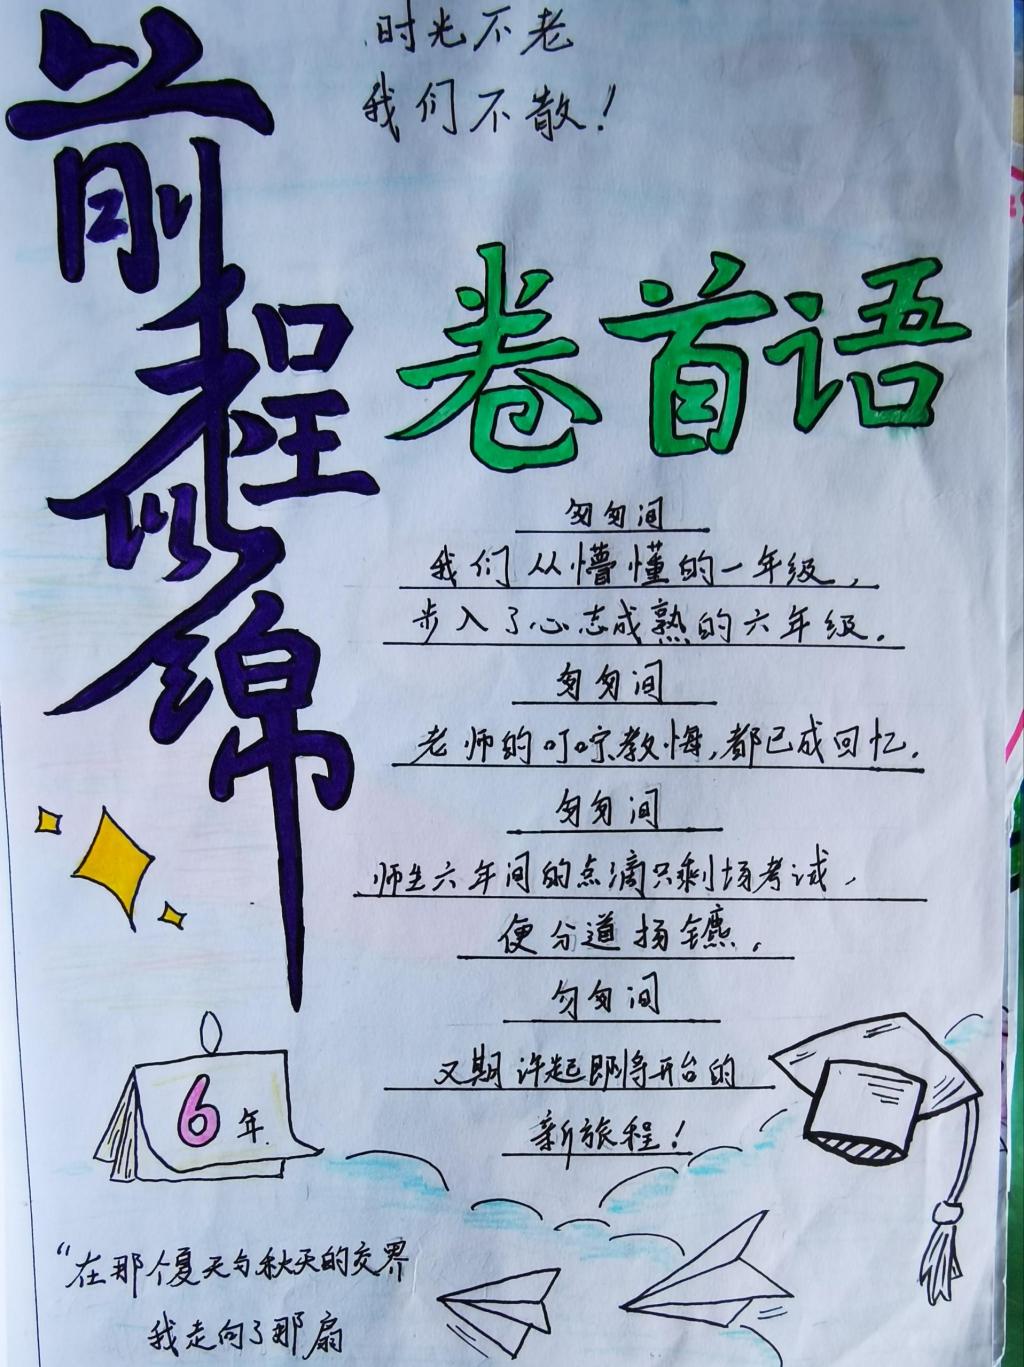 时光不老
我们不散！
前程似锦
卷首语
匆匆间
我们从懵懂的一年级，
步入了心志成熟的六年级．
匆匆间
老师的叮咛教悔，都已成回忆．
匆匆间
师生六年间的点滴只剩场考试，
便分道扬镳．
匆匆间
又期许起即将开台的
新旅程！
6年
“在那个夏天与秋天的交界
我走向了那扇